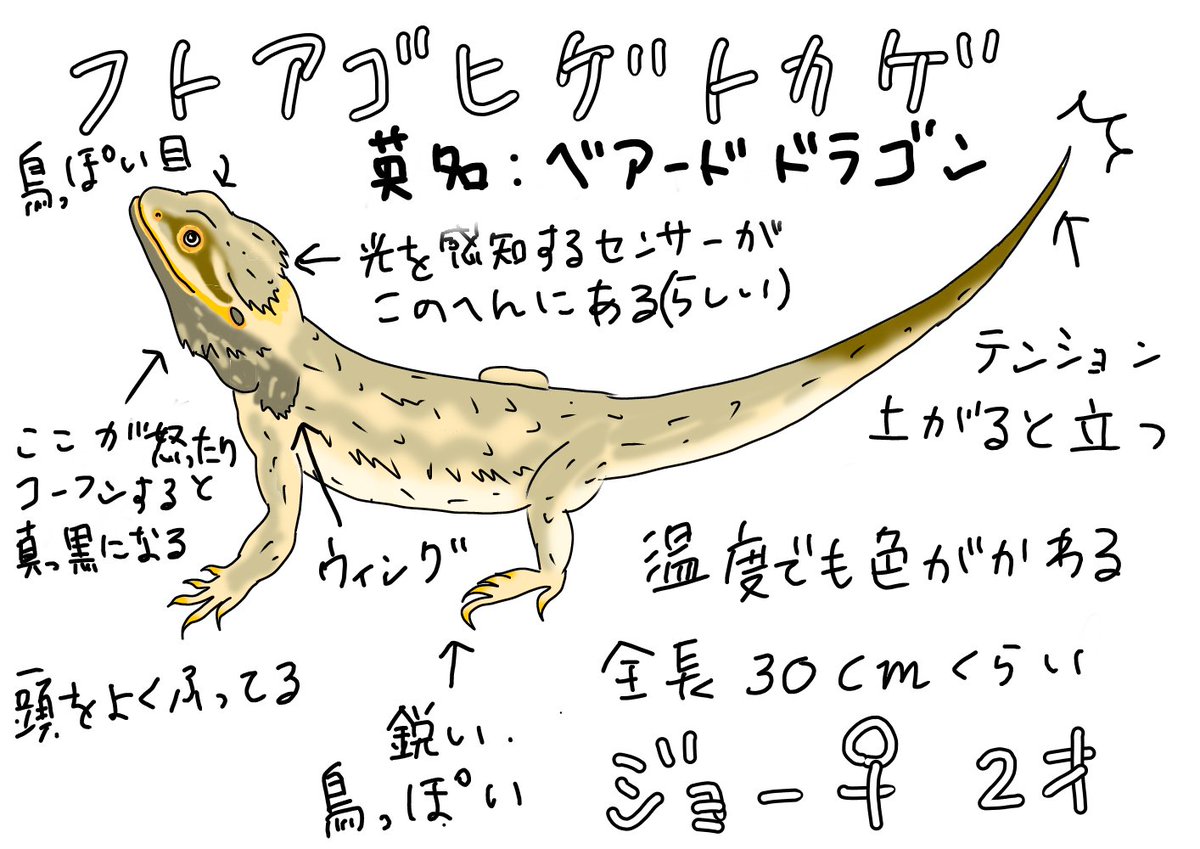 フトアゴヒゲトカゲ
英名:ベアードドラゴン
鳥っぽい目
光を感知するセンサーが
このへんにある(らしい)
テンション
上がると立つ
ここが怒ったり
コーフンすると
真っ黒になる
ウィング
温度でも色がかわる
頭をよくふってる
全長30cmくらい
鋭い.
鳥っぽい
ジョー♀ 2才